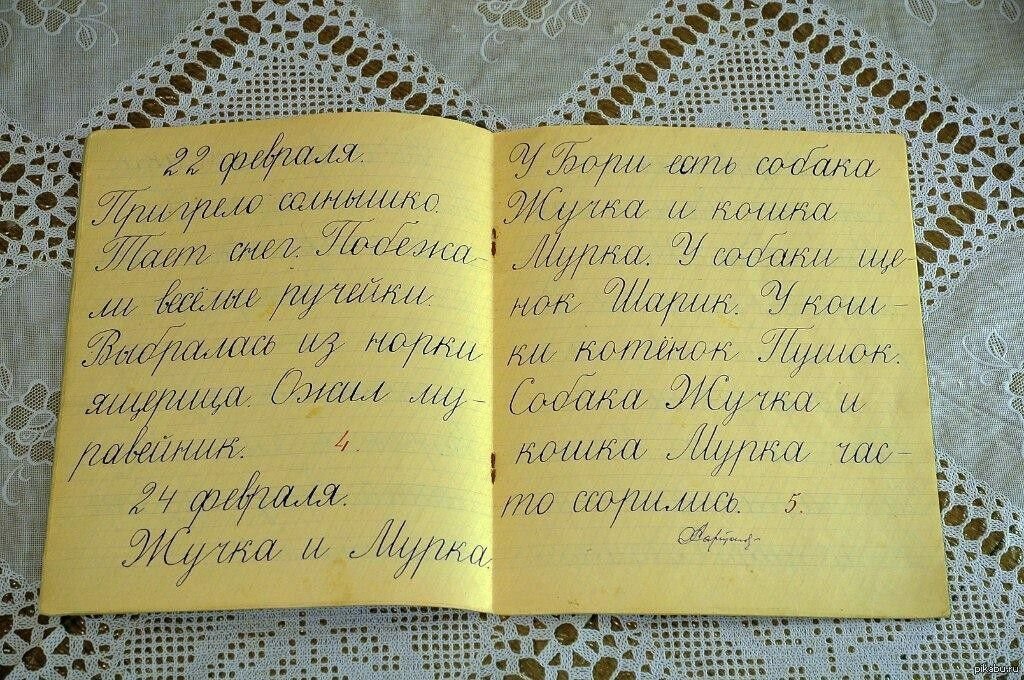 22 февраля.
Пригрело солнышко.
Тает снег. Побежа-
ли весёлые ручейки.
Выбралась из норки
ящерица. Ожил му-
равейник. 4.
24 февраля.
Жучка и Мурка.
У Бори есть собака
Жучка и кошка
Мурка. У собаки ще-
нок Шарик. У кош-
ки котёнок Пушок.
Собака Жучка и
кошка Мурка час-
то ссорились. 5.
pikabu.ru